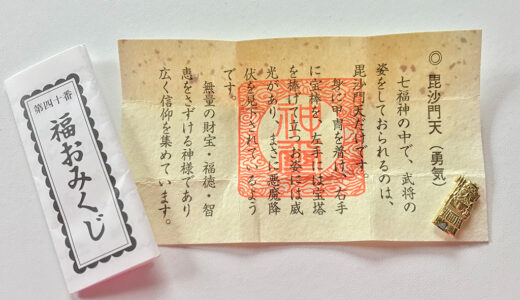 第四十番
福おみくじ
◎ 毘沙門天（勇気）
七福神の中で、武将の
姿をしておられるのは、
毘沙門天だけです。
身に甲冑を着け、右手
に宝棒を、左手には宝塔
を捧げて立つお姿には威
光があり、まさに悪魔降
伏を見
されているよう
です。
無量の財宝・福徳・智
恵をさずける神様であり
広く信仰を集めています。